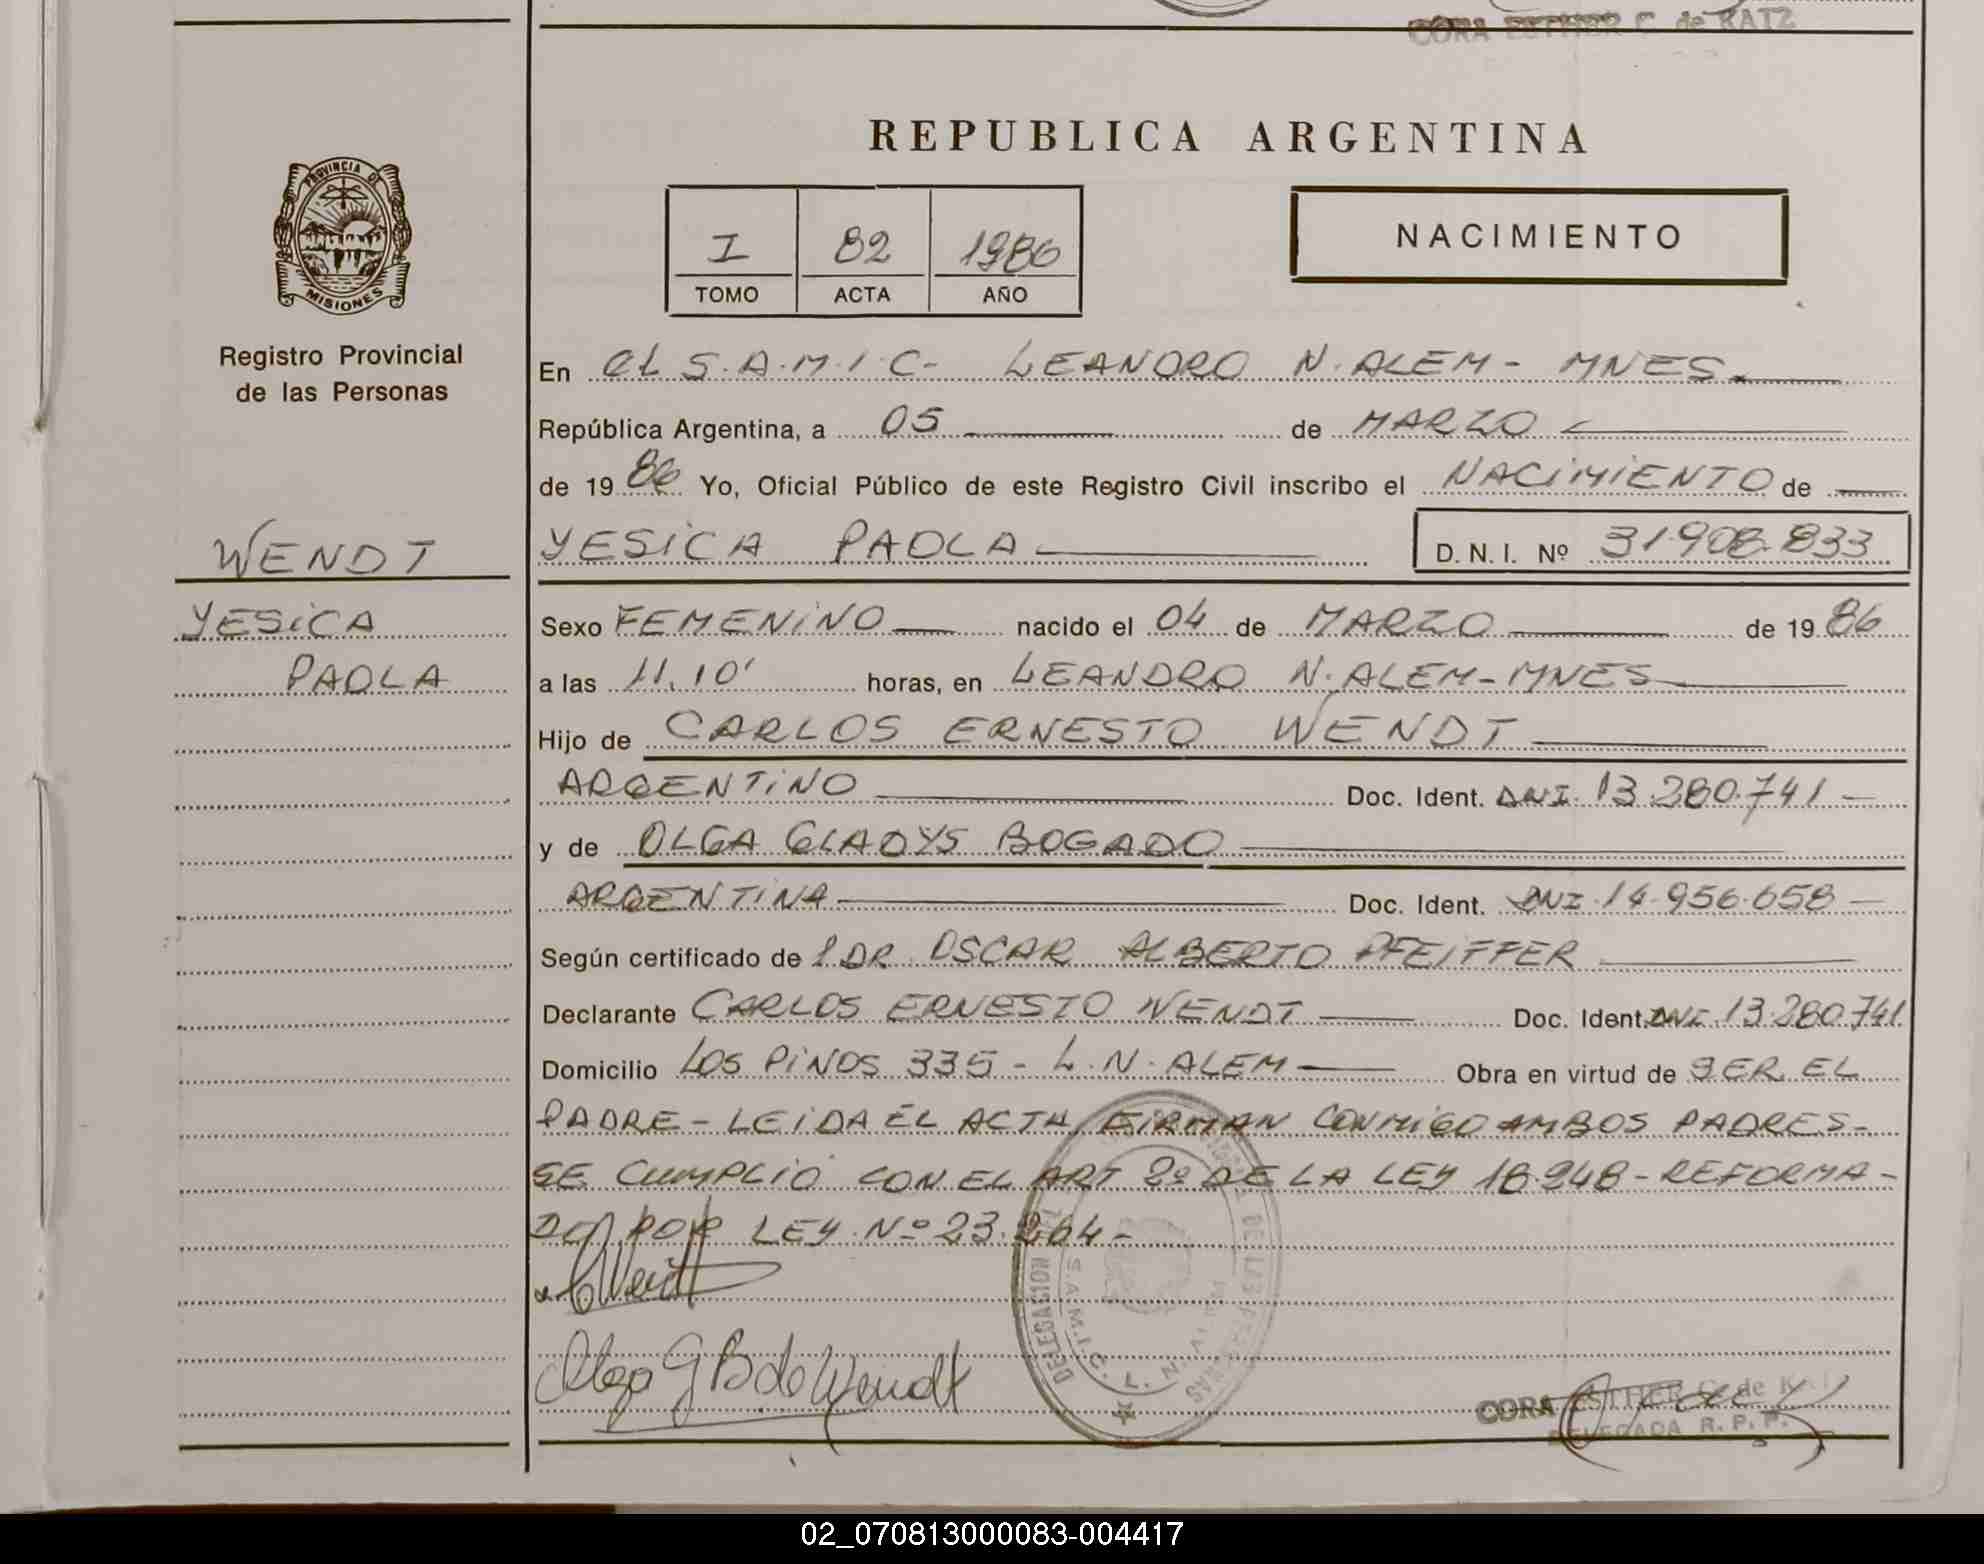 CORA ESTHER C. de KATZ
REPUBLICA ARGENTINA
PROVINCIA DE
MISIONES
Registro Provincial
de las Personas
I 82 1986
TOMO ACTA AÑO
NACIMIENTO
En EL S.A.M.I.C- LEANDRO N. ALEM - MNES.
República Argentina, a 05 de MARZO
de 1986 Yo, Oficial Público de este Registro Civil inscribo el NACIMIENTO de
WENDT
YESICA PAOLA
D.N.I. Nº 31.908.833
YESICA
PAOLA
Sexo FEMENINO nacido el 04 de MARZO de 1986
a las 11.10' horas, en LEANDRO N. ALEM-MNES
Hijo de CARLOS ERNESTO WENDT
ARGENTINO Doc. Ident. DNI. 13.280.741 -
y de OLGA GLADYS BOGADO
ARGENTINA Doc. Ident. DNI 14.956.658 -
Según certificado de DR. OSCAR ALBERTO PFEIFFER
Declarante CARLOS ERNESTO WENDT Doc. Ident. DNI. 13.280.741.
Domicilio LOS PINOS 335 - L.N. ALEM Obra en virtud de SER EL
PADRE - LEIDA EL ACTA, FIRMAN CONMIGO AMBOS PADRES-
SE CUMPLIO CON EL ART 2º DE LA LEY 18.248 - REFORMA-
DO POR LEY Nº 23.264 -
C Wendt
Olga G B de Wendt
DELEGACION
DE LAS PERSONAS
S.A.M.I.C. L. N. ALEM
CORA ESTHER C. de KATZ
DELEGADA R.P.P.
02_070813000083-004417